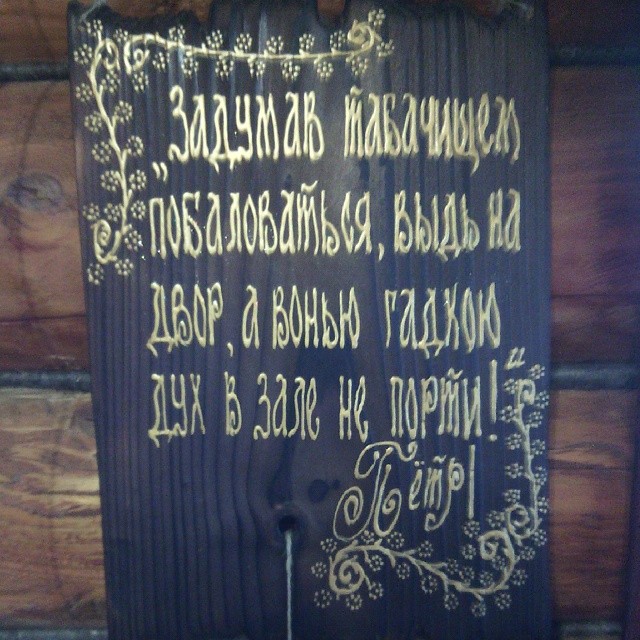 „Задумав табачищем
побаловаться, выдь на
двор, а вонью гадкою
дух в зале не порти!“
Пётр I